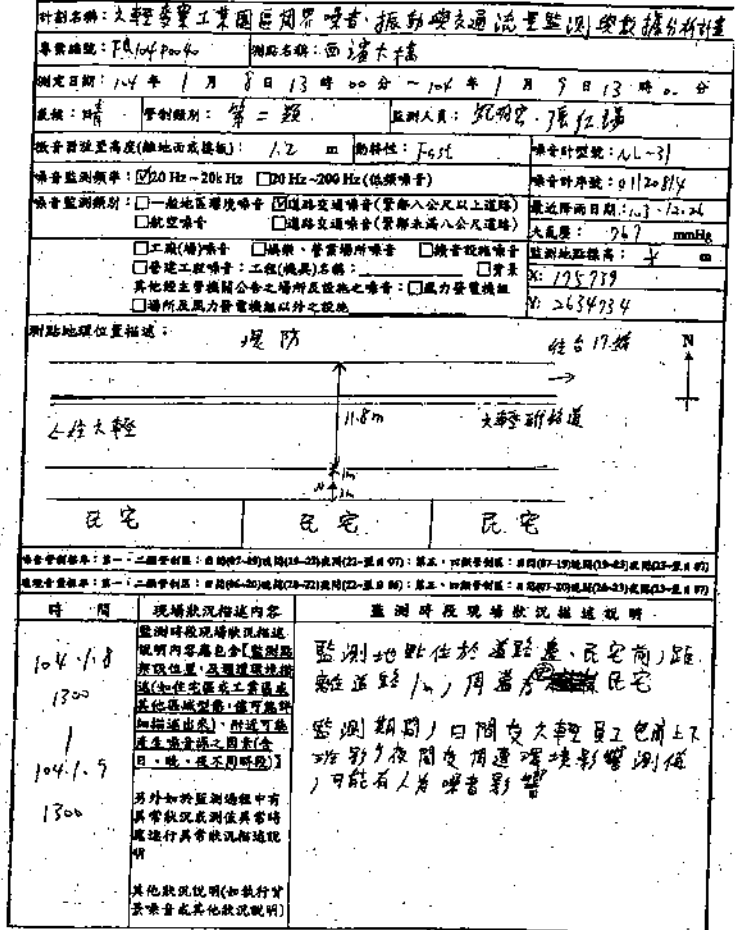 計劃名稱：六輕麥寮工業園區周界噪音、振動與交通流量監測與數據分析計畫
專案編號：FA104P0040 測點名稱：西濱大橋
測定日期：104 年 1 月 8 日 13 時 00 分 ~ 104 年 1 月 9 日 13 時 00 分
天候：晴 管制類別：第二類 監測人員：
微音器位置高度(離地面或樓板)：1.2 m 動特性：Fast 噪音計型號：NL-31
噪音監測頻率：☑20 Hz ~ 20k Hz □20 Hz ~200 Hz (低頻噪音) 噪音計序號：01120814
噪音監測類別：□一般地區環境噪音 ☑道路交通噪音(緊鄰八公尺以上道路) 最近降雨日期：103.12.26
□航空噪音 □道路交通噪音(緊鄰未滿八公尺道路) 大氣壓：767 mmHg
□工廠(場)噪音 □娛樂、營業場所噪音 □擴音設施噪音 監測地點標高： m
□營建工程噪音：工程(機具)名稱： □背景 X: 175759
其他經主管機關公告之場所及設施之噪音：□風力發電機組 Y: 2634934
□場所及風力發電機組以外之設施
測點地理位置描述：
堤防
往台17線
N
11.8m
←往六輕
六輕聯絡道
1m
民宅 民宅 民宅
噪音管制標準：第一、二類管制區：日間(07~19)晚間(19~22)夜間(22~翌日07)；第三、四類管制區：日間(07~19)晚間(19~23)夜間(23~翌日07)
環境音量標準：第一、二類管制區：日間(06~20)晚間(20~22)夜間(22~翌日06)；第三、四類管制區：日間(07~20)晚間(20~23)夜間(23~翌日07)
時 間 現場狀況描述內容 監測時段現場狀況描述說明
104.1.8
1300
|
104.1.9
1300
監測時段現場狀況描述
說明內容應包含【監測點
架設位置、及週遭環境描
述(如住宅區或工業區或
其他區域型態，儘可能詳
細描述出來)、附近可能
產生噪音源之因素(含
日、晚、夜不同時段)】
另外如於監測過程中有
異常狀況或測值異常時
應進行異常狀況描述說
明
其他狀況說明(如執行背
景噪音或其他狀況說明)
監測地點位於道路邊、民宅前，距
離道路1m，周圍為民宅
監測期間，日間受六輕員工包商上下
班影，夜間受周遭環境影響測值
，可能有人為噪音影響